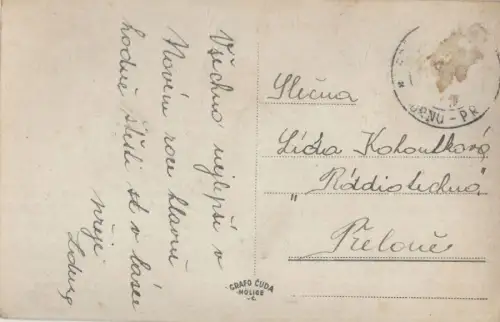 Všechno nejlepší v
Novém roce hlavně
hodně štěstí v lásce
přeje
Slečna
Lída Kohoutková
"Rádiotechna"
Přelouč
GRAFO ČUDA
HOLICE
BRNO - PR